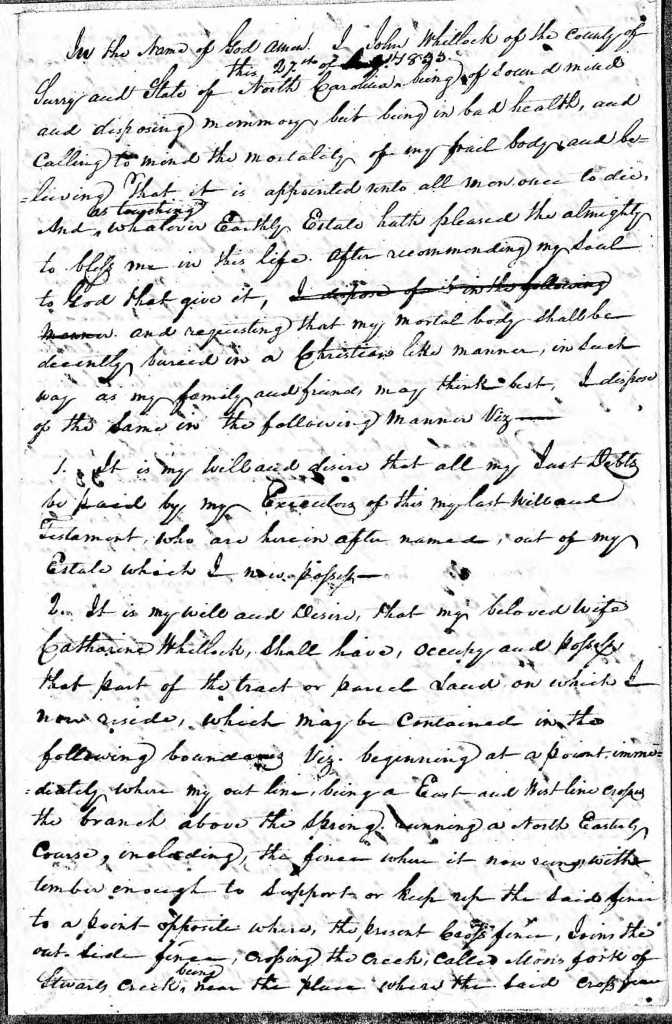 In the Name of God amen. I John Whillock of the County of
this 27th of 1833
Surry and State of North Carolina being of sound mind
and disposing memmory but being in bad health, and
Calling to mind the mortality of my frail body and be-
-lieving That it is appointed unto all men once to die,
as touching
And, whatever Earthly Estate hath pleased the almighty
to bless me in this life. After recommending my Soul
to God that give it, I dispose of it in the following
Manner and requesting that my mortal body shall be
decently buried in a Christian like manner, in such
way as my family and friends may think best, I dispose
of the same in the following Manner Viz—
1. It is my will and desire that all my Just Debts
be paid by my Executors of this my last Will and
Testament, who are herein after named, out of my
Estate which I now possess—
2. It is my will and Desire, that my beloved Wife
Catharine Whillock, Shall have, occupy and possess
that part of the tract or parcel Land on which I
now reside, which may be Contained in the
following boundaries Viz. beginning at a point imme-
-diately where my out line, being a East and West line crosses
the branch above the Spring. running a North Easterly
Course, including, the fence where it now runs, with
timber enough to support or keep up the said fence
to a point opposite where, the present Cross fence, Joins the
out side fence, crossing the creek, called Mons fork of
being
Stewarts Creek, near the place where the said cross fence